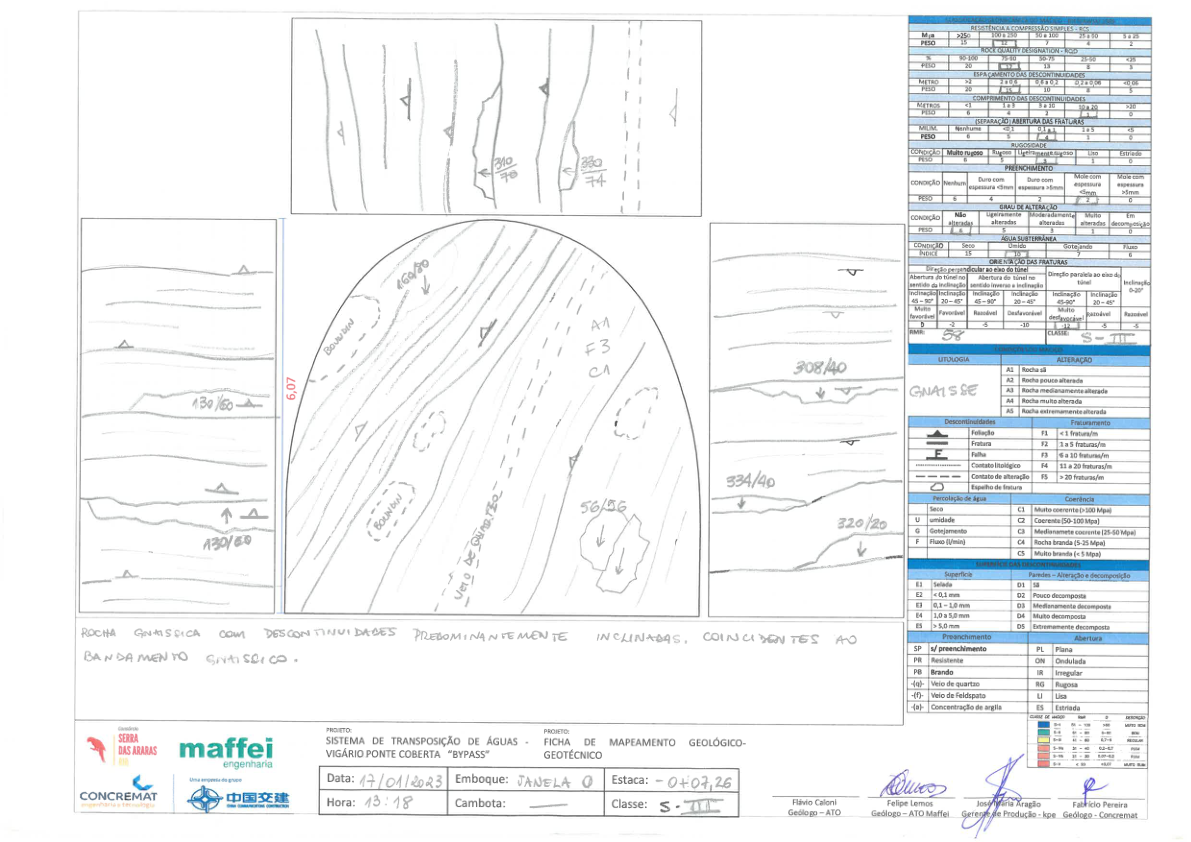 310/70
330/74
160/80
BOUNDIN
A1
F3
C1
6,07
130/60
130/60
BOUNDIN
VEIO DE QUARTZO
56/56
308/40
334/40
320/20
ROCHA GNAISSICA COM DESCONTINUIDADES PREDOMINANTEMENTE INCLINADAS, COINCIDENTES AO
BANDAMENTO GNAISSICO.
RESISTÊNCIA A COMPRESSÃO SIMPLES - RCS
Mpa >250 100 a 250 50 a 100 25 a 50 5 a 25
PESO 15 12 7 4 2
ROCK QUALITY DESIGNATION - RQD
% 90-100 75-90 50-75 25-50 <25
PESO 20 17 13 8 3
ESPAÇAMENTO DAS DESCONTINUIDADES
METRO >2 2 a 0,6 0,6 a 0,2 0,2 a 0,06 <0,06
PESO 20 15 10 8 5
COMPRIMENTO DAS DESCONTINUIDADES
METROS <1 1 a 3 3 a 10 10 a 20 >20
PESO 6 4 2 1 0
(SEPARAÇÃO) ABERTURA DAS FRATURAS
MILIM. Nenhuma <0,1 0,1 a 1 1 a 5 <5
PESO 6 5 4 1 0
RUGOSIDADE
CONDIÇÃO Muito rugoso Rugoso Ligeiramente rugoso Liso Estriado
PESO 6 5 3 1 0
PREENCHIMENTO
CONDIÇÃO Nenhum Duro com espessura <5mm Duro com espessura >5mm Mole com espessura <5mm Mole com espessura >5mm
PESO 6 4 2 2 0
GRAU DE ALTERAÇÃO
CONDIÇÃO Não alteradas Ligeiramente alteradas Moderadamente alteradas Muito alteradas Em decomposição
PESO 6 5 3 1 0
ÁGUA SUBTERRÂNEA
CONDIÇÃO Seco Úmido Gotejando Fluxo
ÍNDICE 15 10 7 6
ORIENTAÇÃO DAS FRATURAS
Direção perpendicular ao eixo do túnel Direção paralela ao eixo do túnel Inclinação 0-20°
Abertura do túnel no sentido da inclinação Abertura do túnel no sentido inverso a inclinação
Inclinação 45 – 90° Inclinação 20 – 45° Inclinação 45 – 90° Inclinação 20 – 45° Inclinação 45-90° Inclinação 20 – 45°
Muito favorável Favorável Razoável Desfavorável Muito desfavorável Razoável Razoável
0 -2 -5 -10 -12 -5 -5
RMR: 58 CLASSE: S - III
LITOLOGIA ALTERAÇÃO
GNAISSE
A1 Rocha sã
A2 Rocha pouco alterada
A3 Rocha medianamente alterada
A4 Rocha muito alterada
A5 Rocha extremamente alterada
Descontinuidades Fraturamento
Foliação F1 < 1 fratura/m
Fratura F2 1 a 5 fraturas/m
F Falha F3 6 a 10 fraturas/m
Contato litológico F4 11 a 20 fraturas/m
Contato de alteração F5 > 20 fraturas/m
Espelho de fratura
Percolação de água Coerência
Seco C1 Muito coerente (>100 Mpa)
U umidade C2 Coerente (50-100 Mpa)
G Gotejamento C3 Medianamente coerente (25-50 Mpa)
F Fluxo (l/min) C4 Rocha branda (5-25 Mpa)
C5 Muito branda (< 5 Mpa)
SUPERFÍCIE DAS DESCONTINUIDADES
Superfície Paredes – Alteração e decomposição
E1 Selada D1 Sã
E2 < 0,1 mm D2 Pouco decomposta
E3 0,1 – 1,0 mm D3 Medianamente decomposta
E4 1,0 a 5,0 mm D4 Muito decomposta
E5 > 5,0 mm D5 Extremamente decomposta
Preenchimento Abertura
SP s/ preenchimento PL Plana
PR Resistente ON Ondulada
PB Brando IR Irregular
-(q)- Veio de quartzo RG Rugosa
-(f)- Veio de Feldspato LI Lisa
-(a)- Concentração de argila ES Estriada
SERRA
DAS ARARAS
maffei
engenharia
CONCREMAT
engenharia e tecnologia
Uma empresa do grupo
中国交建
CHINA COMMUNICATIONS CONSTRUCTION
PROJETO:
SISTEMA DE TRANSPOSIÇÃO DE ÁGUAS -
VIGÁRIO PONTE COBERTA “BYPASS”
PROJETO:
FICHA DE MAPEAMENTO GEOLÓGICO-
GEOTÉCNICO
Data: 17/01/2023 Emboque: JANELA 0 Estaca: - 0+07,26
Hora: 13:18 Cambota: — Classe: S - III
Flávio Caloni
Geólogo – ATO
Felipe Lemos
Geólogo – ATO Maffei
José Maria Aragão
Gerente de Produção - kpe
Fabrício Pereira
Geólogo - Concremat